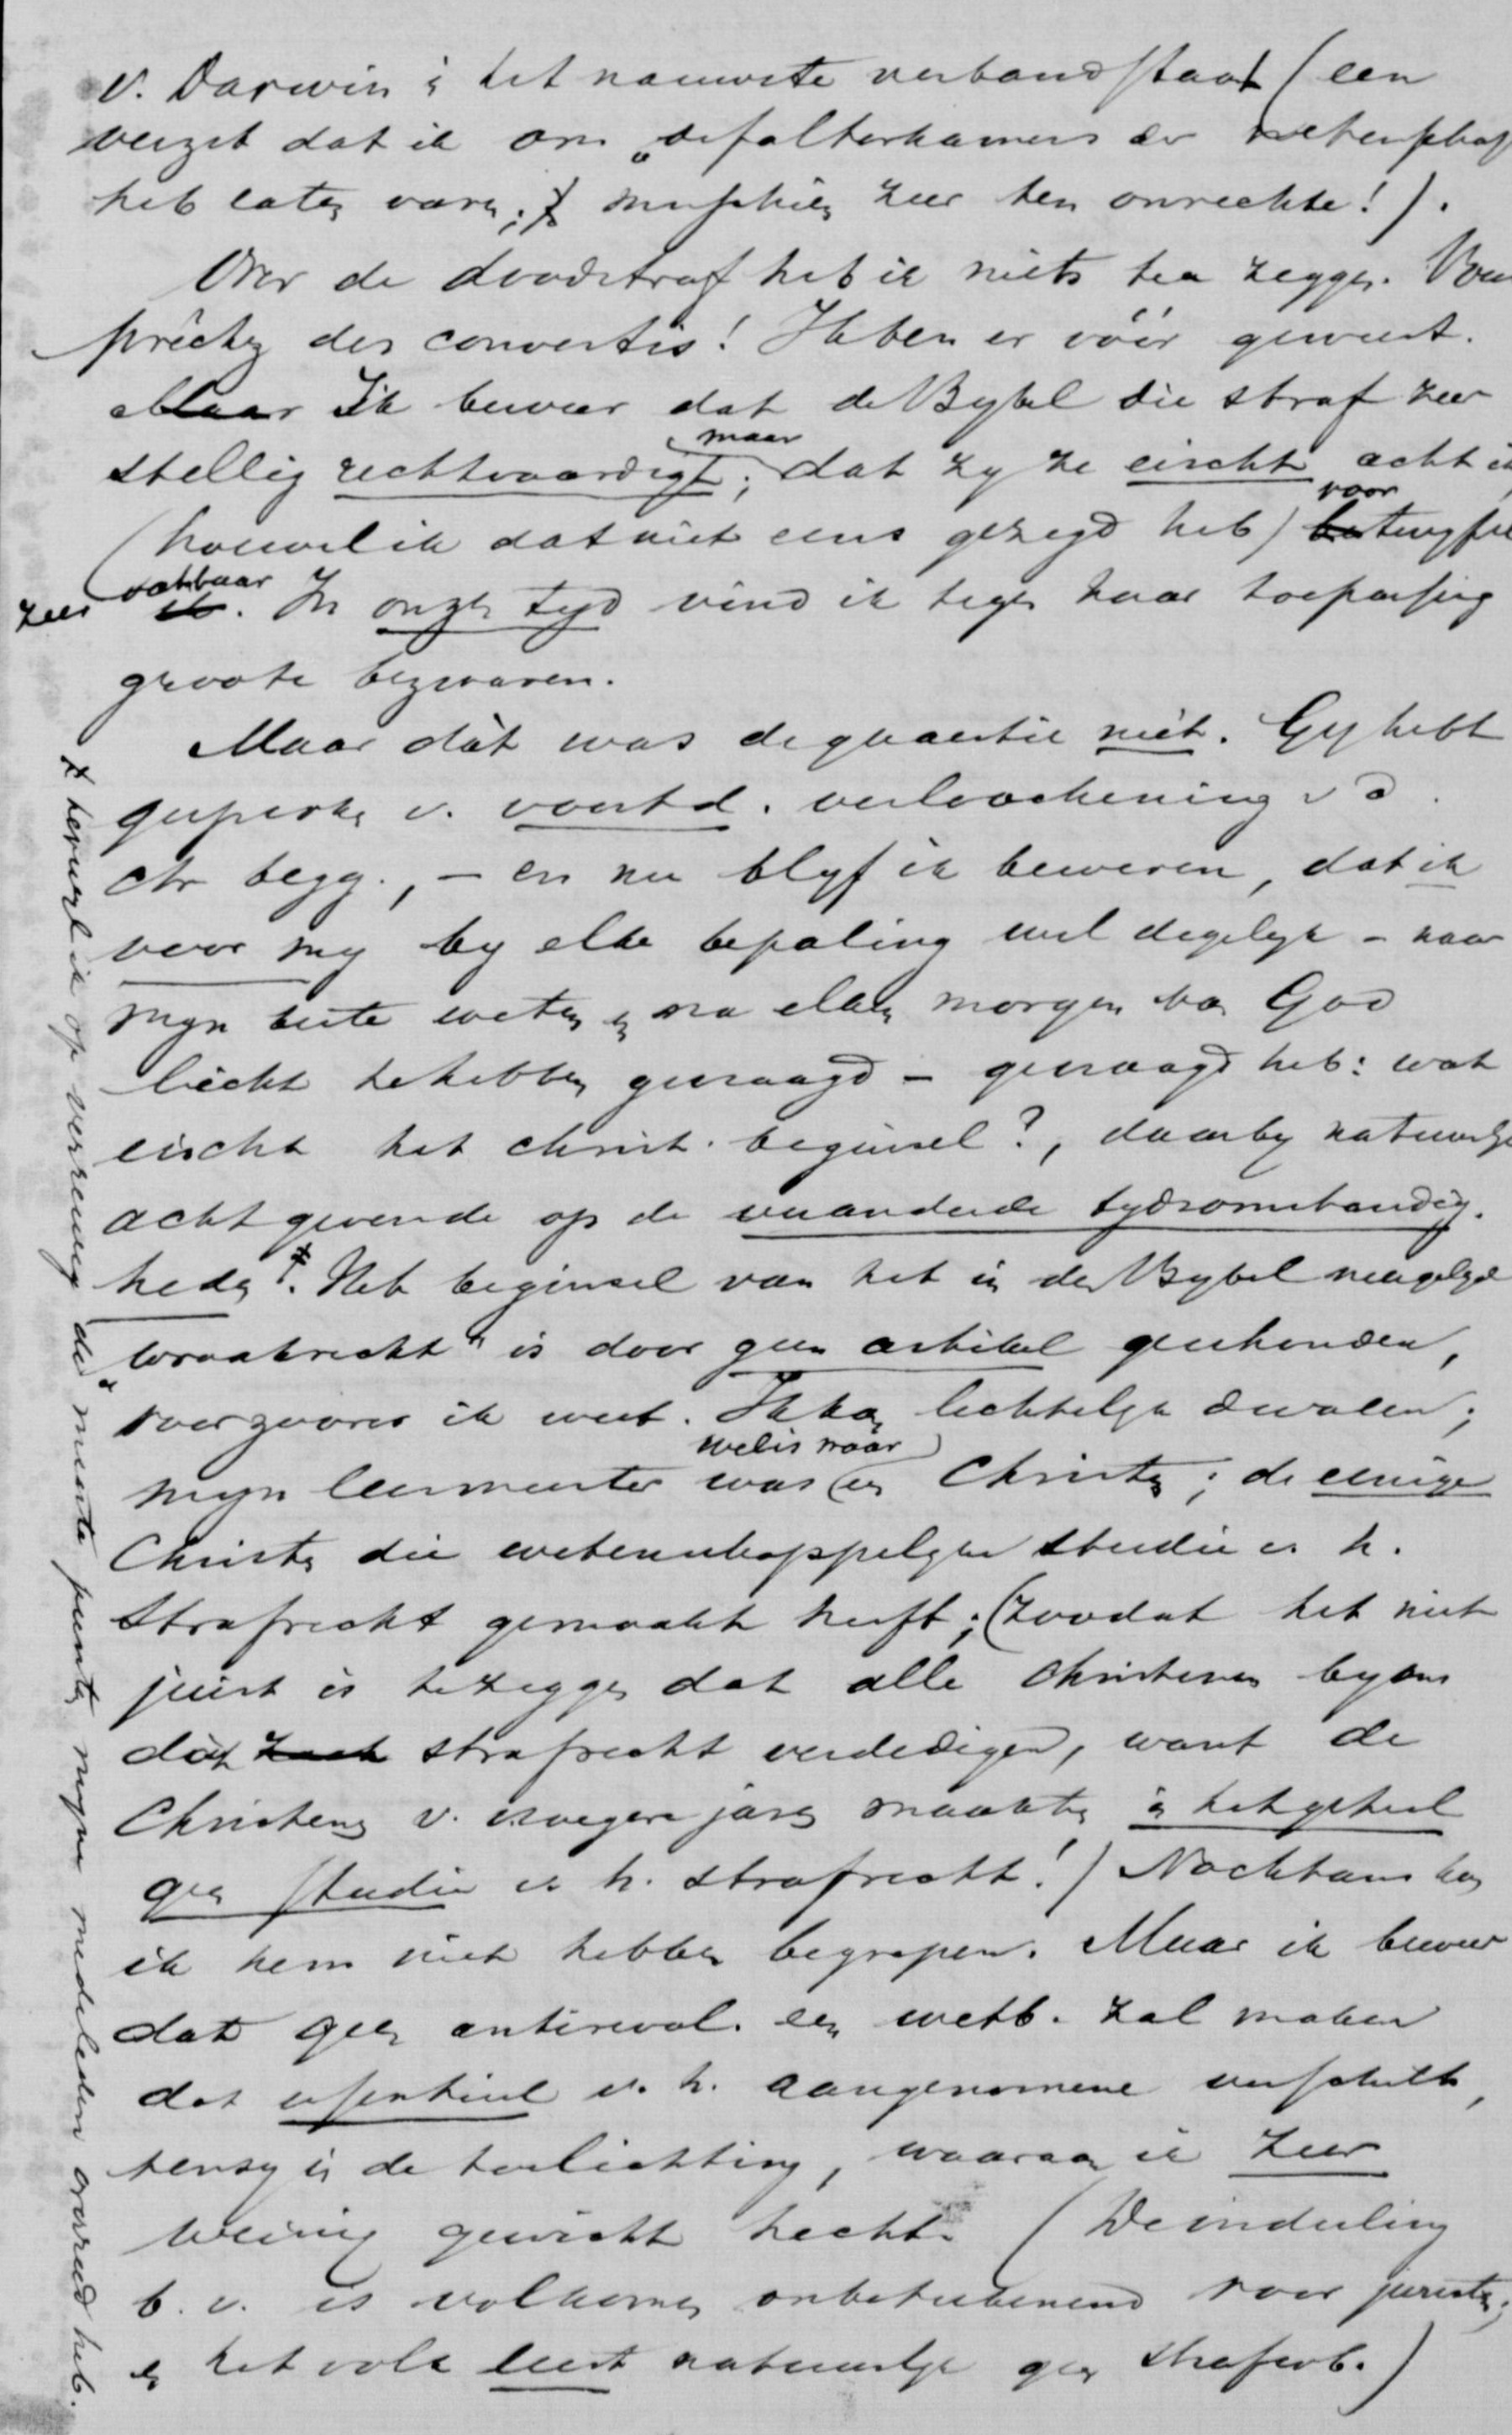 v. Darwin in het nauwste verband staat (een
verzet dat ik om „de folterkamers der wetenschap
heb laten varen; misschien zeer ten onrechte!).
Over de doodstraf heb ik niets te zeggen. Vous
prêchez des convertis! Ik ben er vóór geweest.
Maar Ik beweer dat de Bybel die straf zeer
stellig rechtvaardigt; maar dat zy ze eischt acht ik
(hoewel ik dat niet eens gezegd heb) voor
zeer vatbaar. In onzen tyd vind ik tegen haar toepassing
groote bezwaren.
Maar dàt was de quaestie niet. Gy hebt
gesproken v. voortd. verloochening v d.
chr begg., – en nu blyf ik beweren, dat ik
voor my by elke bepaling wel degelyk – naar
myn beste weten en na elken morgen van God
licht te hebben gevraagd – gevraagd heb: wat
eischt het christ. beginsel?, daarby natuurlyk
acht gevende op de veranderde tydsomstandig-
heden ‡. Het beginsel van het in den Bybel neergelegde
„wraakrecht" is door geen artikel geschonden,
voor zoover ik weet. Ik kan lichtelyk dwalen;
myn leermeester was welis waar een Christen; de eenige
Christen die wetenschappelyke studie v. h.
strafrecht gemaakt heeft; (zoodat het niet
juist is te zeggen dat alle Christenen by ons
dàt strafrecht verdedigen, want de
Christenen v. vroegere jaren maakten in het geheel
geen studie v. h. strafrecht!) Nochtans kan
ik hem niet hebben begrepen. Maar ik beweer
dat geen antirevol. een wetb. zal maken
dat essentieel v. h. aangenomene verschilt,
tenzy in de toelichting, waaraan ik zeer
weinig gewicht hecht. (De indeeling
b. v. is volkomen onbeteekenend voor juristen;
en het volk leest natuurlyk geen strafwb.)
‡ terwyl ik op verreweg de meeste punten myne medeleden overreed heb.